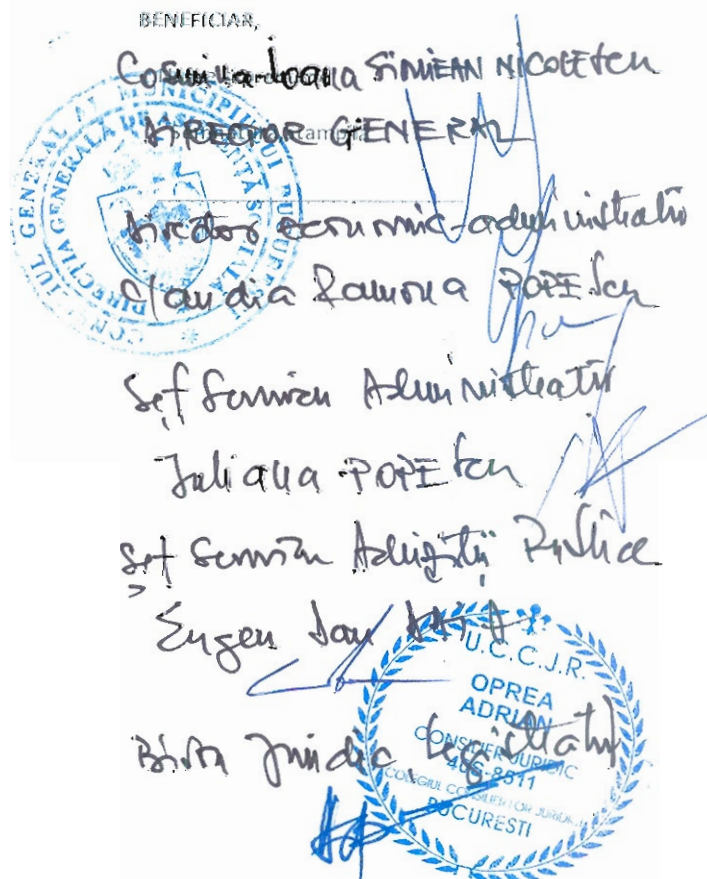 BENEFICIAR,
Cosmina-Ioana SIMIEAN NICOLESCU
DIRECTOR GENERAL
Director economic-administrativ
Claudia Ramona POPESCU
Șef Serviciu Administrativ
Iuliana POPESCU
Șef Serviciu Achiziții Publice
Eugen Dan
Birou Juridic, Legislativ
CONSILIUL GENERAL AL MUNICIPIULUI BUCUREȘTI
DIRECȚIA GENERALĂ DE ASISTENȚĂ SOCIALĂ
U.C.C.J.R.
OPREA
ADRIAN
CONSILIER JURIDIC
COLEGIUL CONSILIERILOR JURIDICI
BUCURESTI